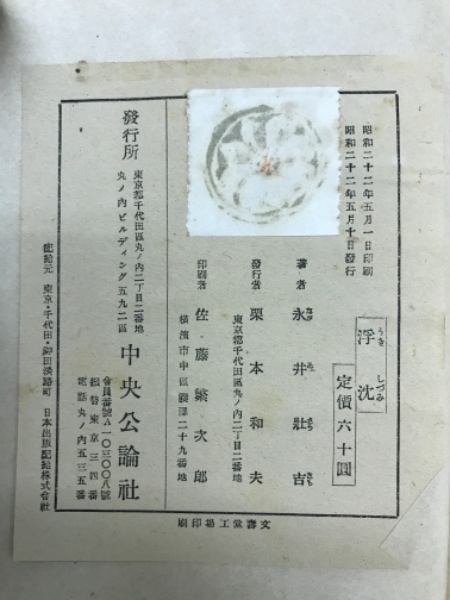 昭和二十二年五月一日印刷
昭和二十二年五月十日發行
浮沈
うきしづみ
定價六十圓
著者 永井壯吉
發行者 栗本和夫
東京都千代田區丸ノ内二丁目二番地
印刷者 佐藤繁次郎
發行所
東京都千代田區丸ノ内二丁目二番地
丸ノ内ビルディング五九二區
中央公論社
會員番號A一〇三〇〇八號
振替東京三四番
電話丸ノ内五三五番
配給元 東京・千代田・神田淡路町 日本出版配給株式會社
文壽堂工場印刷